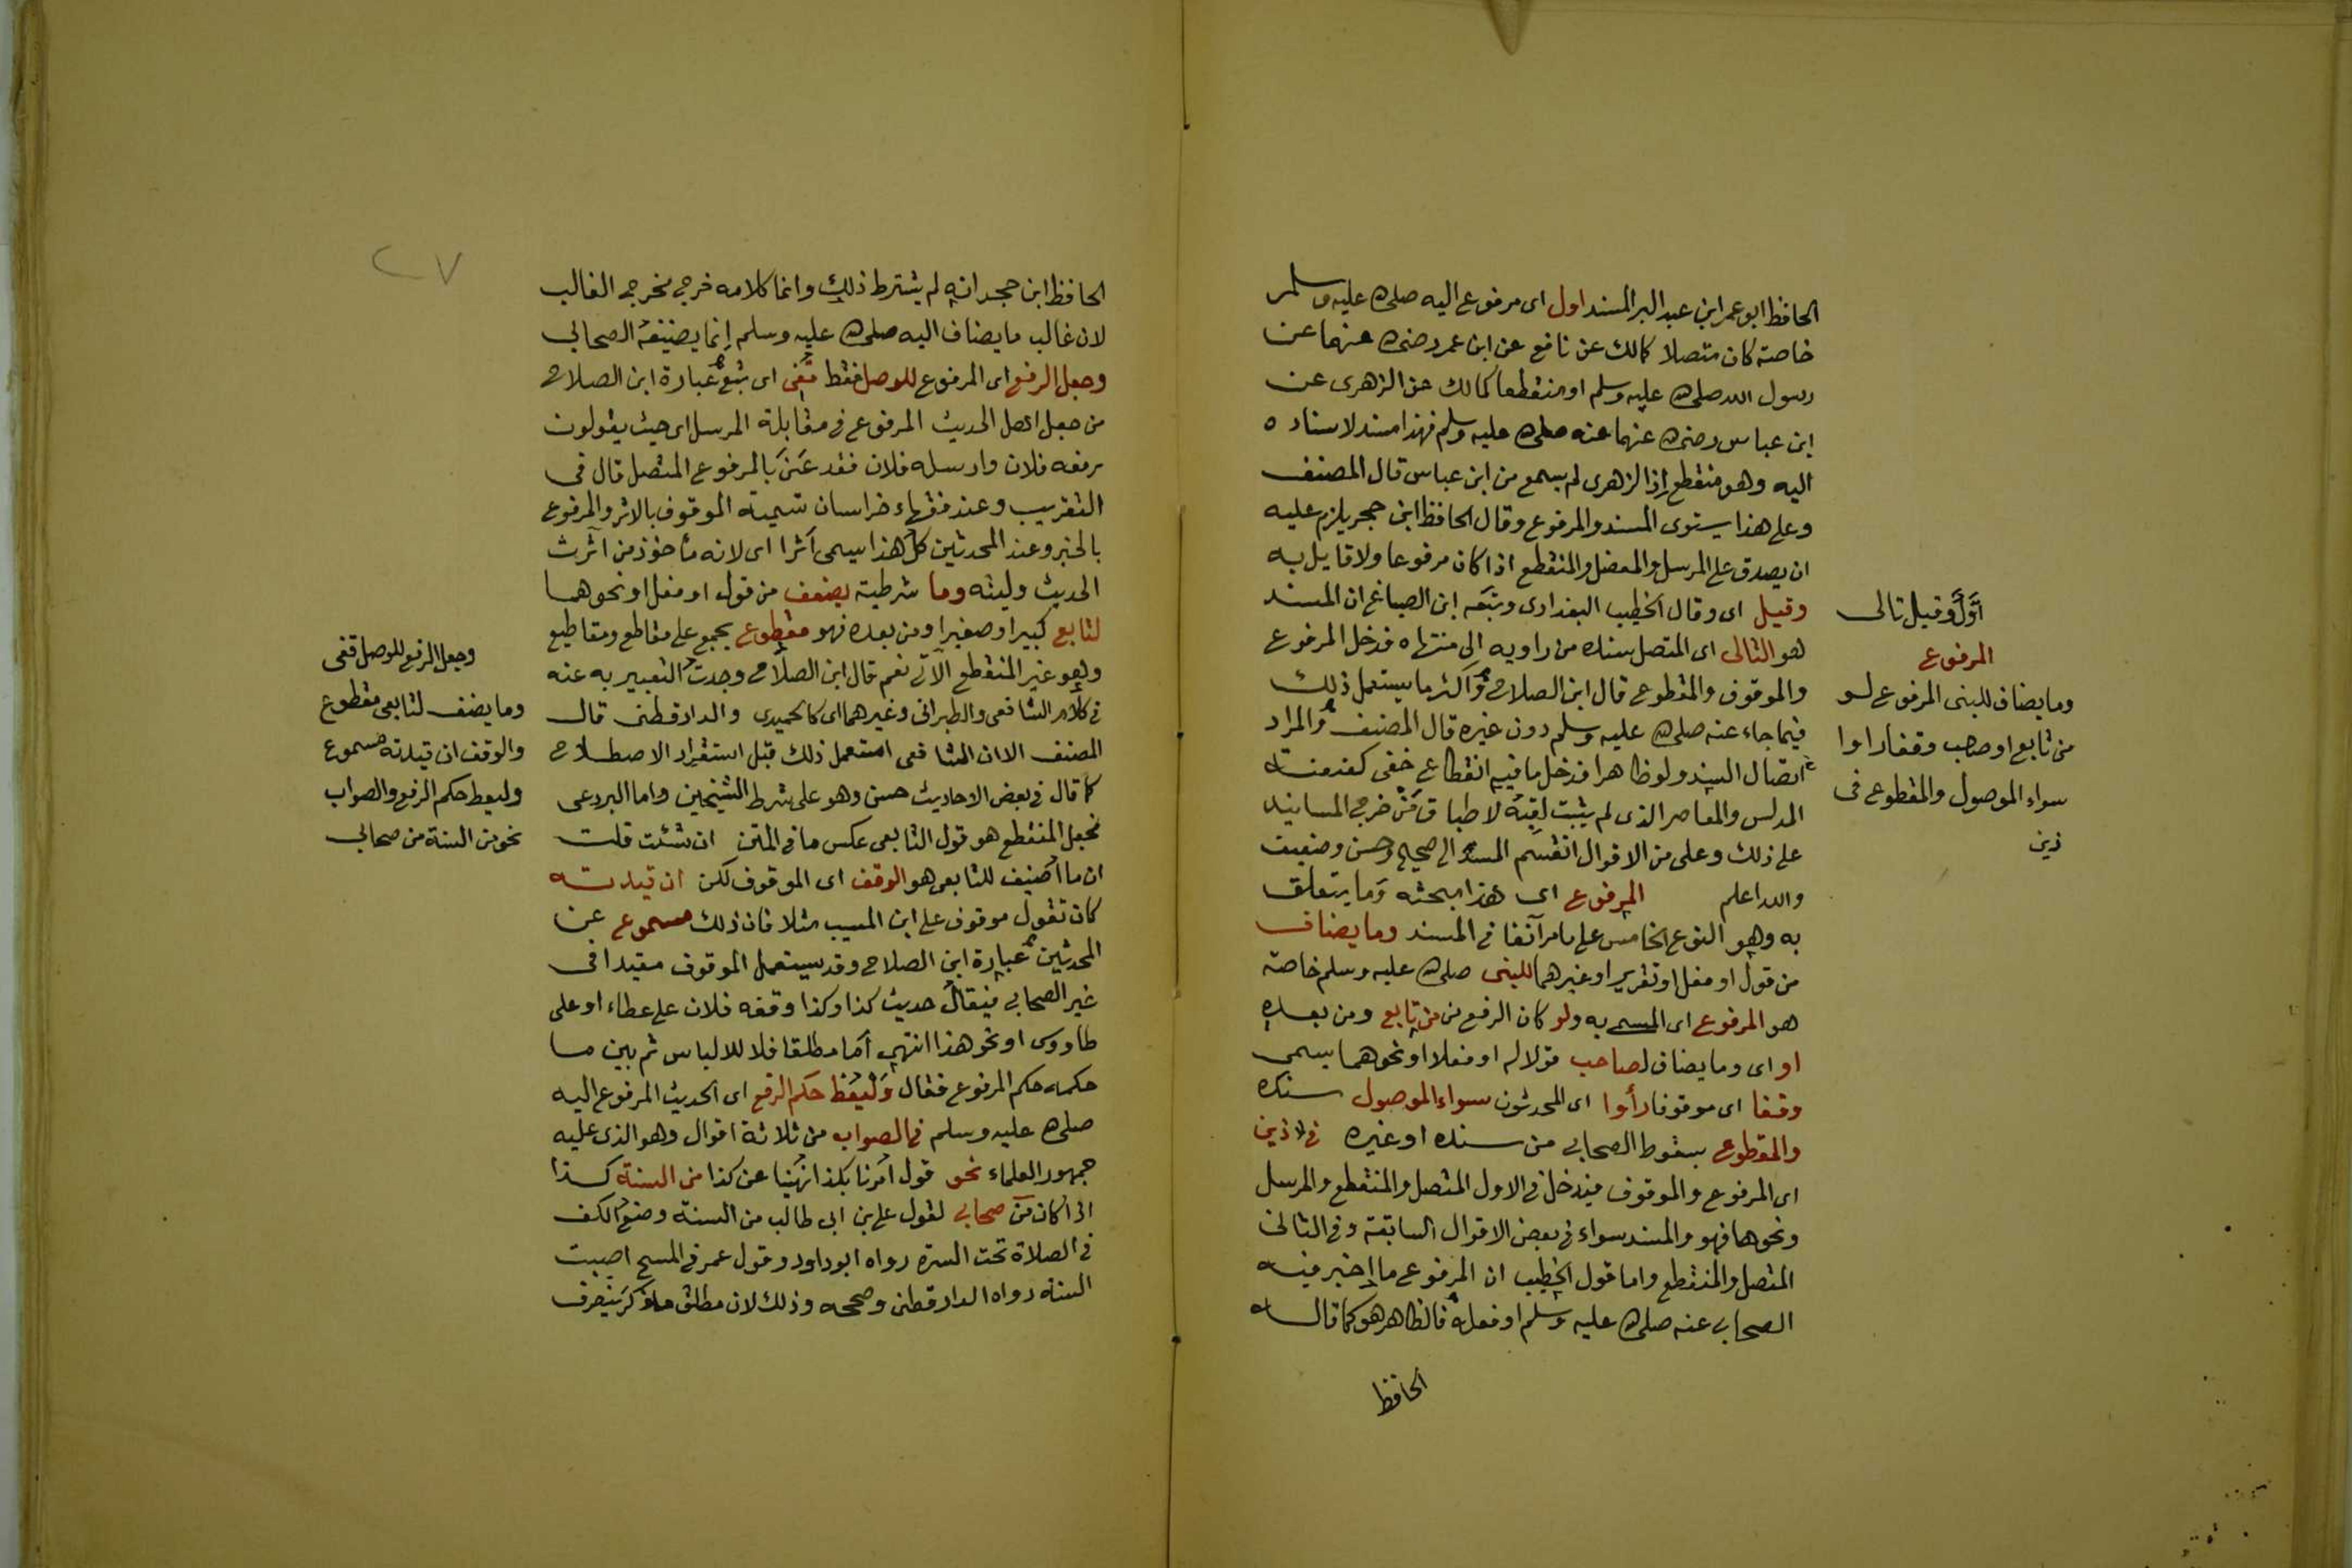 الحافظ ابو عمر ابن عبد البر المسند اول اى مرفوع اليه صلى الله عليه وسلم
خاصة كان متصلا كمالك عن نافع عن ابن عمر رضى الله عنهما عن
رسول الله صلى الله عليه وسلم او منقطعا كمالك عن الزهرى عن
ابن عباس رضى الله عنهما عنه صلى الله عليه وسلم فهذا مسند لاسناده
اليه وهو منقطع اذ الزهرى لم يسمع من ابن عباس قال المصنف
وعلى هذا يستوى المسند والمرفوع وقال الحافظ ابن حجر يلزم عليه
ان يصدق على المرسل والمعضل والمنقطع اذا كان مرفوعا ولا قايل به
وقيل اى وقال الخطيب البغدادى وتبعه ابن الصباغ ان المسند
هو التالى اى المتصل سنده من راويه الى منتهاه فدخل المرفوع
والموقوف والمقطوع قال ابن الصلاح واكثر ما يستعمل ذلك
فيما جاء عنه صلى الله عليه وسلم دون غيره قال المصنف والمراد
اتصال السند ولو ظاهرا فدخل ما فيه انقطاع خفى كعنعنة
المدلس والمعاصر الذى لم يثبت لقيه لاطباق من خرج المسانيد
على ذلك وعلى من الاقوال انقسم المسند الى صحيح وحسن وضعيف
والله اعلم المرفوع اى هذا مبحثه وما يتعلق
به وهو النوع الخامس على ما مر آنفا فى المسند وما يضاف
من قول او فعل او تقرير او غيرهما للنبى صلى الله عليه وسلم خاصة
هو المرفوع اى المسمى به ولو كان الرفع من من تابع ومن بعده
او اى وما يضاف لصاحب قولا له او فعلا او نحوهما يسمى
وقفا اى موقوفا رأوا اى المحدثون سواء الموصول سنده
والمقطوع بسقوط الصحابى من سنده او غيره فى ذين
اى المرفوع والموقوف فيدخل فى الاول المتصل والمنقطع والمرسل
ونحوها فهو والمسند سواء فى بعض الاقوال السابقة وفى الثانى
المتصل والمنقطع واما قول الخطيب ان المرفوع ما اخبر فيه
الصحابى عنه صلى الله عليه وسلم او فعله فالظاهر هو كما قاله
الحافظ
اول وقيل تالى
المرفوع
وما يضاف للنبى المرفوع لو
من تابع او صاحب وقفا راوا
سواء الموصول والمقطوع فى
ذين
٢٧
الحافظ ابن حجر انه لم يشترط ذلك وانما كلامه خرج مخرج الغالب
لان غالب ما يضاف اليه صلى الله عليه وسلم انما يضيفه الصحابي
وجعل الرفع اى المرفوع للوصل فقط قفى اى تبع عبارة ابن الصلاح
من جعل اهل الحديث المرفوع فى مقابلة المرسل اى حيث يقولون
رفعه فلان وارسله فلان فقد عنى بالمرفوع المتصل قال فى
التقريب وعند فقهاء خراسان تسمية الموقوف بالاثر والمرفوع
بالخبر وعند المحدثين كل هذا يسمى اثرا اى لانه مأخوذ من آثرت
الحديث وما شرطية يضف من قول او فعل او نحوهما
لتابع كبيرا او صغيرا او من بعده فهو مقطوع يجمع على مقاطع ومقاطيع
وهو غير المنقطع الآتى نعم قال ابن الصلاح وجدت التعبير به عنه
فى كلام الشافعى والطبرانى وغيرهما اى كالحميدى والدارقطنى قال
المصنف الا ان الشافعى استعمل ذلك قبل استقرار الاصطلاح
كما قال فى بعض الاحاديث حسن وهو على شرط الشيخين واما البردعى
فجعل المنقطع هو قول التابعى عكس ما فى المتن ان شئت قلت
ان ما اضيف للتابعى هو الوقف اى الموقوف لكن ان قيدته
كان تقول موقوف على ابن المسيب مثلا فان ذلك مسموع عن
المحدثين عبارة ابن الصلاح وقد يستعمل الموقوف مقيدا فى
غير الصحابى فيقال حديث كذا وكذا وقفه فلان على عطاء او على
طاووس او نحو هذا انتهى اما مطلقا فلا للالباس ثم بين ما
حكمه حكم المرفوع فقال وليعط حكم الرفع اى الحديث المرفوع اليه
صلى الله عليه وسلم فى الصواب من ثلاثة اقوال وهو الذى عليه
جمهور العلماء نحو قول امرنا بكذا نهينا عن كذا من السنة كذا
اذا كان من صحابى لقول على بن ابى طالب من السنة وضع الكف
فى الصلاة تحت السرة رواه ابو داود وقول عمر فى المسح اصبت
السنة رواه الدارقطنى وصححه وذلك لان مطلق ما ذكر ينصرف
وجعل الرفع للوصل قفى
وما يضف لتابعى مقطوع
والوقف ان قيدته مسموع
وليعط حكم الرفع والصواب
نحو من السنة من صحابى